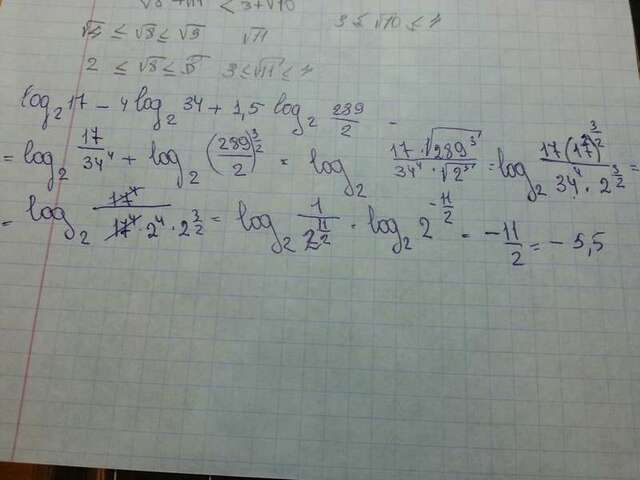 √8 + √11 < 3 + √10
√4 ≤ √8 ≤ √9   √11   3 ≤ √10 ≤ 4
2 ≤ √8 ≤ 3   3 ≤ √11 ≤ 4
log₂ 17 − 4 log₂ 34 + 1,5 log₂ 289/2 =
= log₂ 17/34⁴ + log₂ (289/2)^(3/2) = log₂ (17·√289³)/(34⁴·√2³) = log₂ (17(17²)^(3/2))/(34⁴·2^(3/2)) =
= log₂ 17⁴/(17⁴·2⁴·2^(3/2)) = log₂ 1/2^(11/2) = log₂ 2^(−11/2) = −11/2 = −5,5